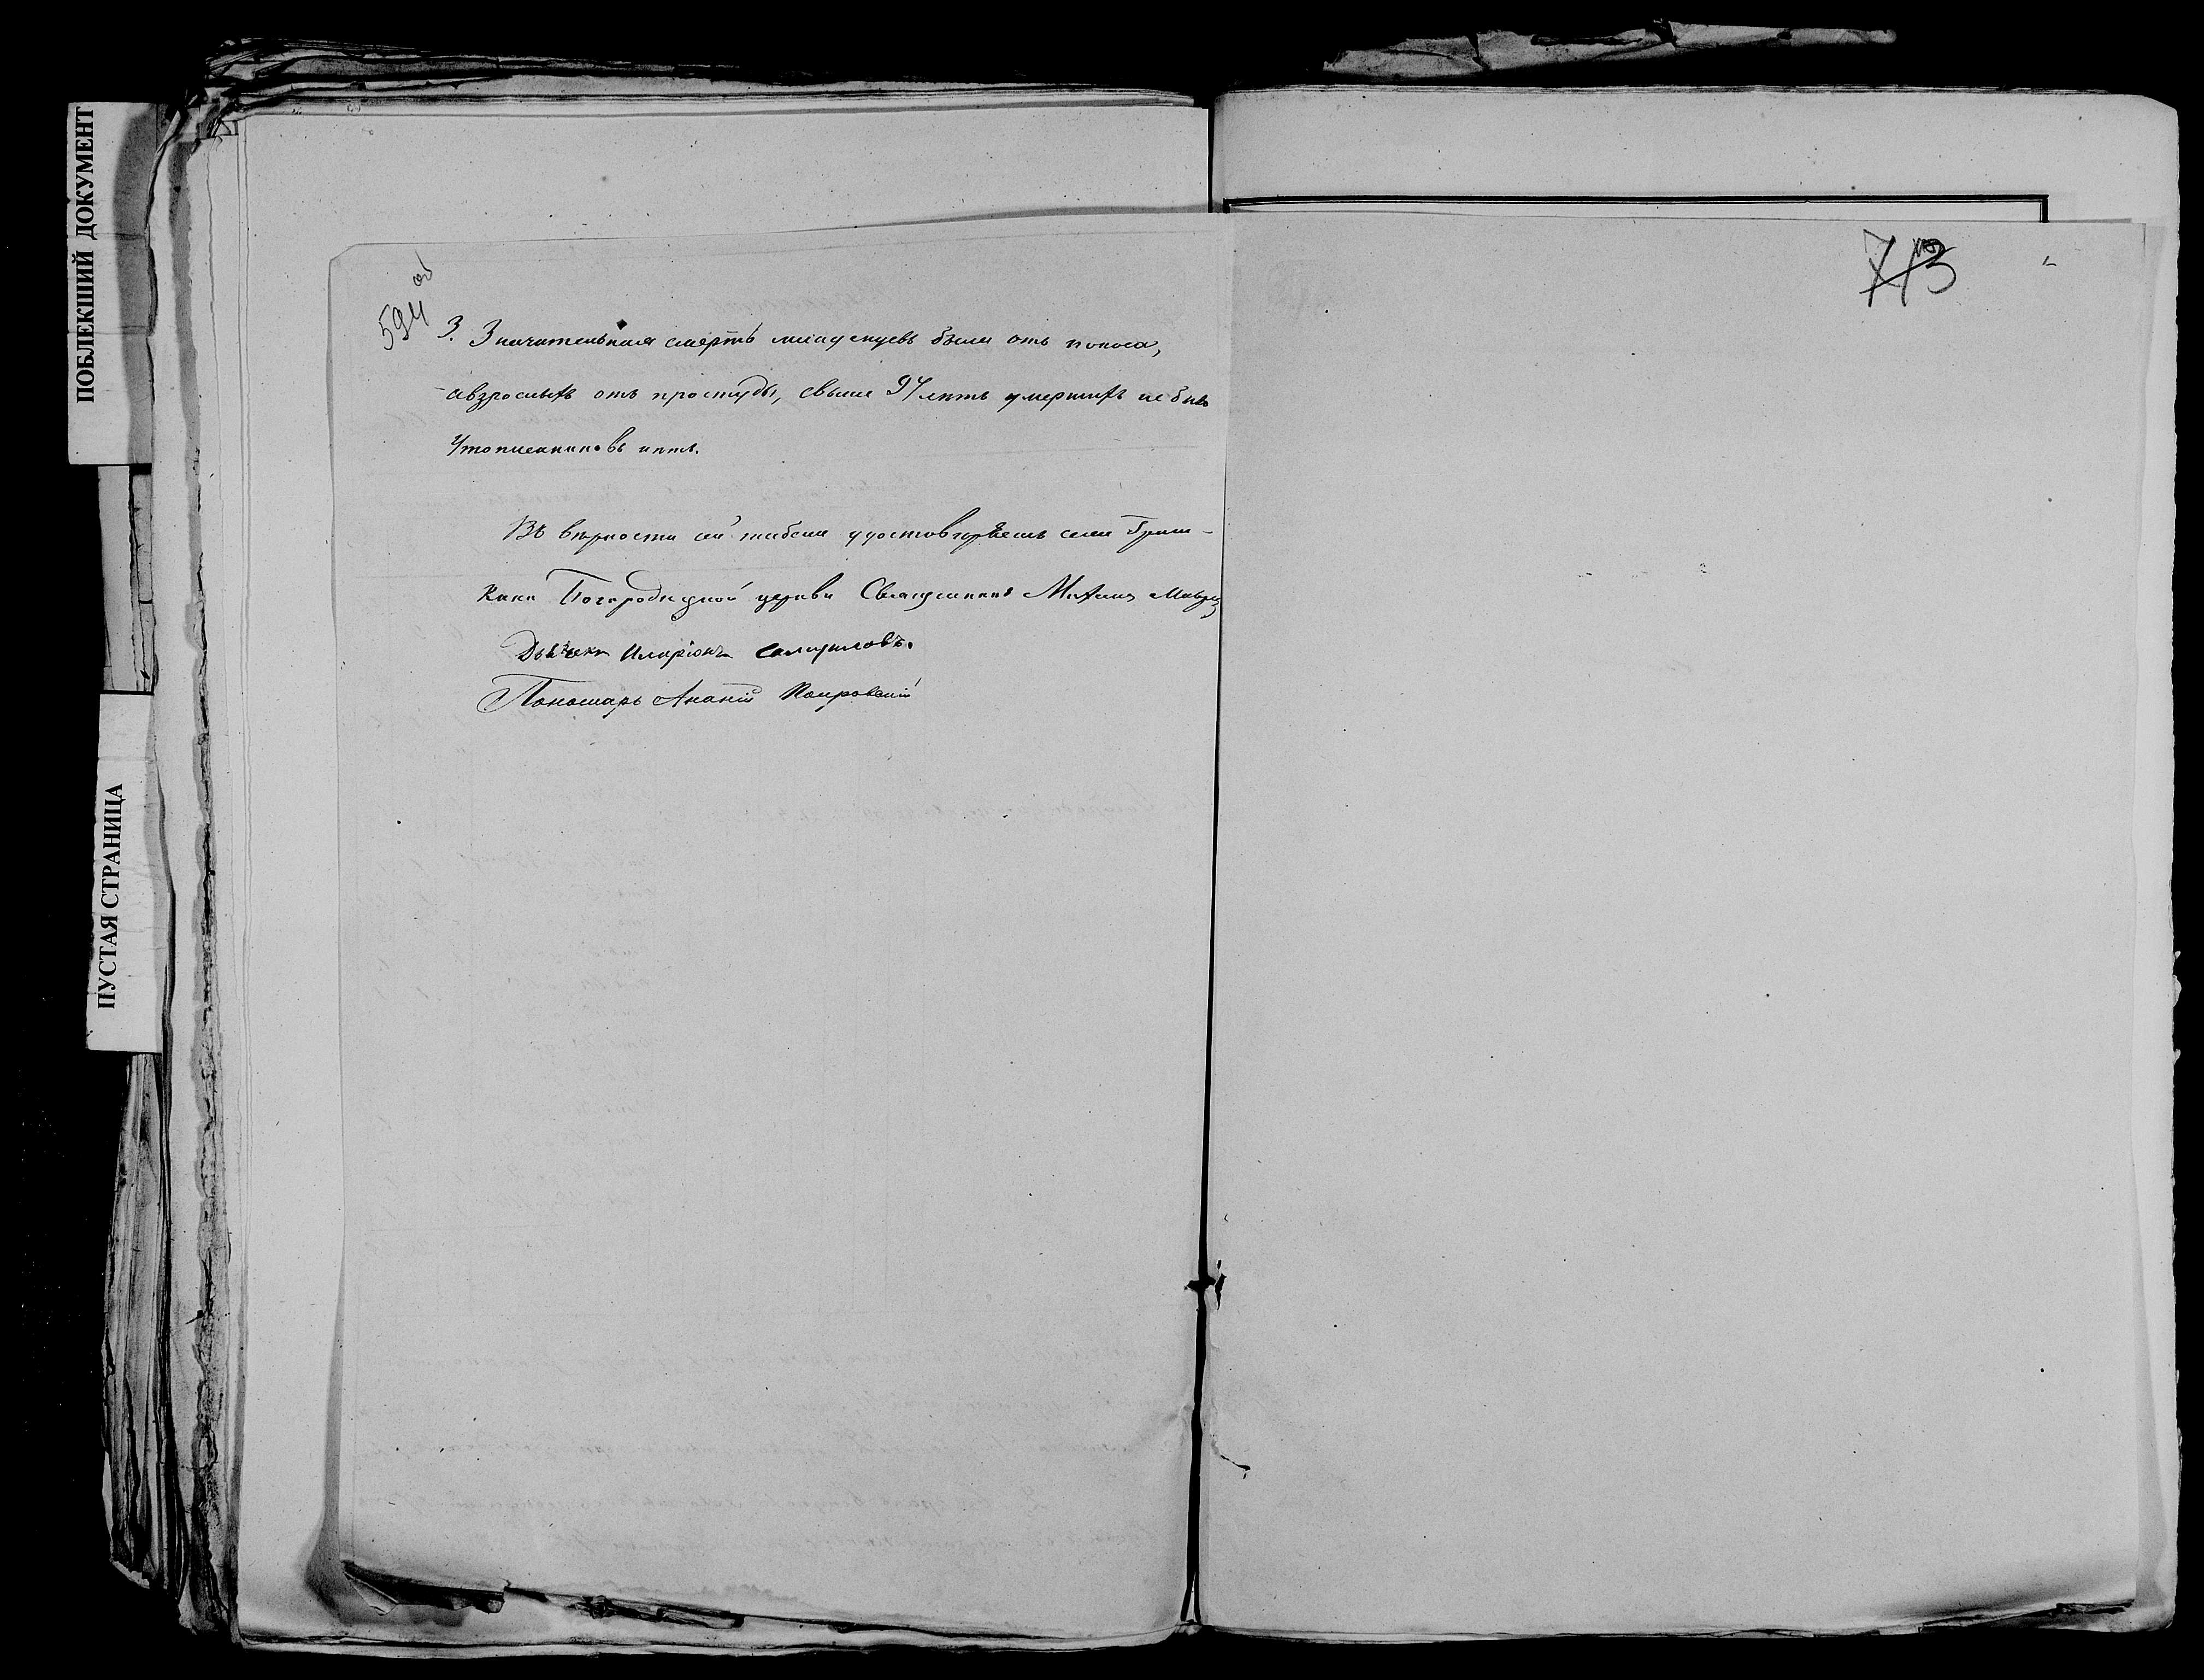 ПОБЛЕКШИЙ ДОКУМЕНТ
ПУСТАЯ СТРАНИЦА
594 об
3. Значительная смерть младенцевъ были отъ поноса,
авзрослыхъ отъ простуды, свыше 97 летъ умершихъ не было
Утопленниковъ нетъ.
Въ верности сей табели удостоверяемъ села
Богородицкой церкви Священникъ Михаилъ
Дьячекъ Иларіонъ Самуиловъ.
Пономарь Ананій Покровскій
713